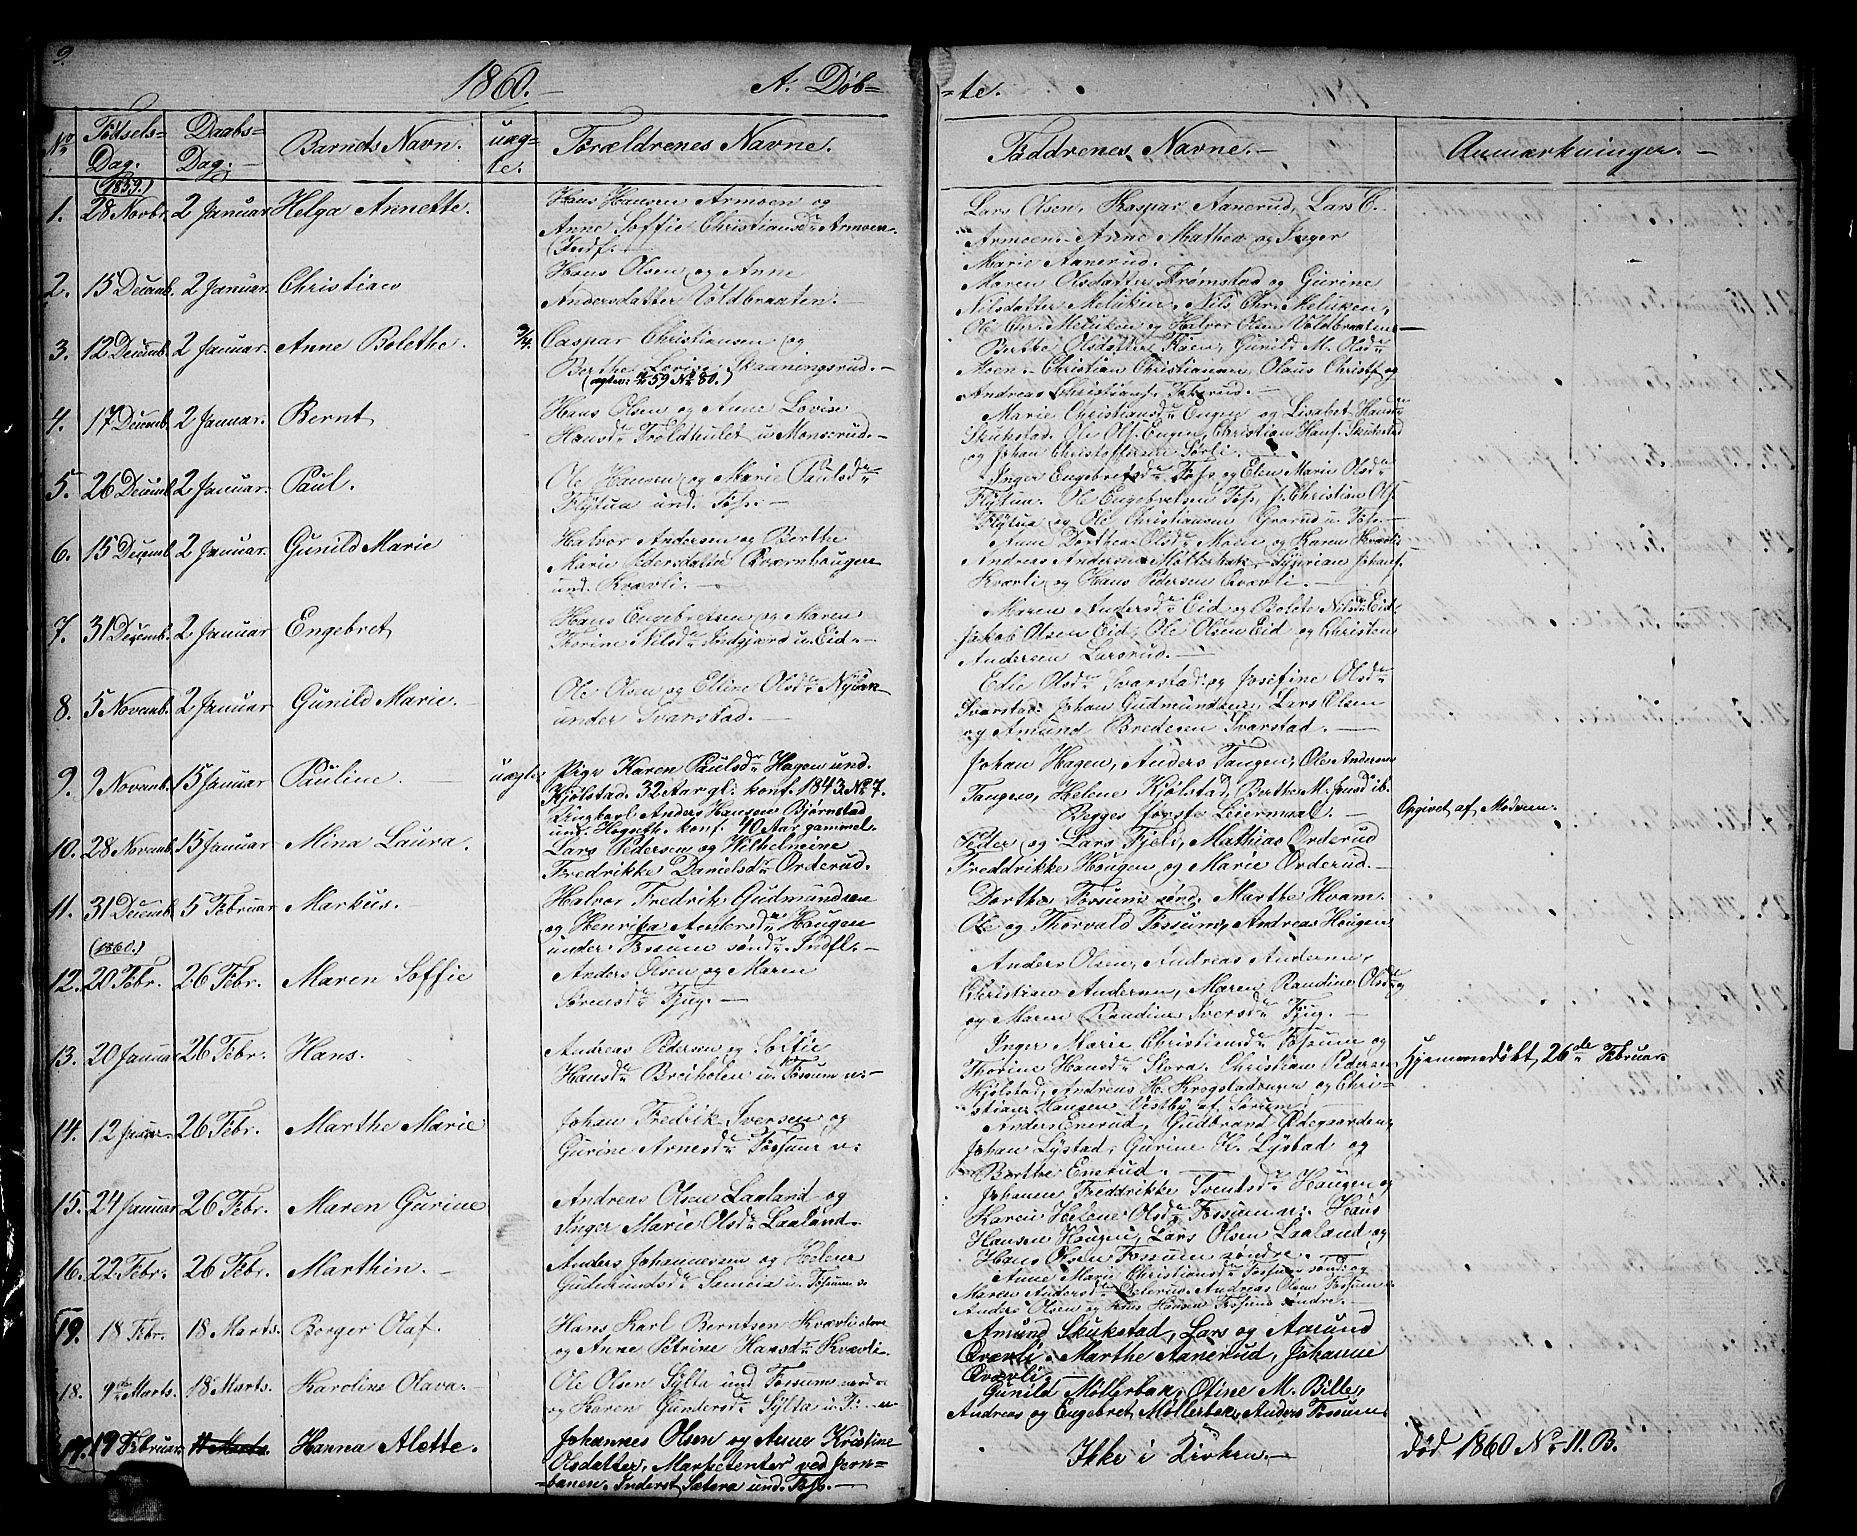 9.
1860.— A. Døb=
=te.
No
Fødsels=
Dag.
Daabs=
Dag.—
Barnets Navn.
uæg=
te.
Forældrenes Navne.
Faddrenes Navne.—
Anmærkninger.—
(1859.)
1. 28 Novbr. 2 Januar Helga Annette.
Hans Hansen Armoen og
Anne Soffie Christiansd. Armoen.
Indf.—
Lars Olsen, Kaspar Aanerud, Lars C.
Armoen.— Anne Mathea og Inger
Marie Aanerud.
2. 15 Decemb. 2 Januar. Christian
Hans Olsen og Anne
Andersdatter Voldbraaten.—
Maren Olsdatter Strømstad og Gurine
Nilsdatter Meliken, Nils Chr. Meliken,
Ole Chr. Meliken og Halvor Olsen Voldbraaten.—
3. 12 Decemb. 2 Januar. Anne Bolethe. 3/4.
Caspar Christiansen og
Berthe Lovise Skaaningsrud.—
Berthe Olsdatter Moen, Gunild M. Olsd.
Moen.— Christian Christiansen, Olaus Christf. og
Andreas Christians.
4. 17 Decemb. 2 Januar. Bernt
Hans Olsen og Anne Lovise
Hansd. Troldhulet u. Monserud.—
Marie Christiansd. Engen og Lisabet Hansd.
Skukstad. Ole Ols. Engen, Christian Hans. Skukstad
og Johan Christoffersen Sørli.—
5. 26 Decemb. 2 Januar. Paul.
Ole Hansen og Marie Paulsd.
Flytua und. Fos.—
Inger Engebretsd. Fos. og Elen Marie Olsd.
Flytua. Ole Engebretsen Fos, Christian Ols.
Flytua og Ole Christiansen
6. 15 Decemb. 2 Januar. Gunild Marie
Halvor Andersen og Berthe
Marie Pedersdatter Qværnhaugen
und. Kvævli.—
Anne Dorthea Olsd. Moen og Karen Kvævli
Andreas Andersen Møllerbak, Syverian Johans.
Kvævli og Hans Pedersen Qvævli.—
7. 31 Decemb. 2 Januar Engebret
Hans Engebretsen og Maren
Thorine Nilsd. Indsjøen u. Eid.—
Maren Andersd. Eid og Bolete Nilsd. Eid.
Jakob Olsen Eid, Ole Olsen Eid og Christen
Andersen Larsrud.—
8. 5 Novemb. 2 Januar Gunild Marie.—
Ole Olsen og Elline Olsd.
under Svarstad.—
Edle Olsd. Svarstad, og Josefine Olsd.
Svarstad. Johan Gudmundsen, Lars Olsen
og Amund Bredesen Svarstad.—
9. 9 Novemb. 15 Januar Pauline.— uægte
Pige Karen Paulsd. Hagen und.
Kjølstad. 32 Aar gl. konf. 1843 No 7.
Ungkarl Anders Hansen Bjørnstad
und. Hogseth. konf. 40 Aar gammel.
Johan Hagen, Anders Tangen, Ole Andersen
Tangen, Helene Kjølstad, Berthe M. Jensd. ib.
Begges første Leiermaal.—
Opgivet af Moderen.
10. 28 Novemb. 15 Januar Mina Laura.
Lars Pedersen og Wilhelmine
Fredrikke Danielsd. Orderud.—
Peder og Lars Fjeld, Mathias Orderud
Freddrikke Hougen og Marie Orderud.—
11. 31 Decemb. 5 Februar Markus.—
Halvor Fredrik Gudmundsen
og Henrika Andersd. Hougen
under Fossum sønd. Indfl.—
Dorthe Fossum sønd. Marthe Kvam.
Ole og Thorvald Fossum, Andreas Hougen.
(1860.)
12. 20 Febr. 26 Febr. Maren Soffie
Anders Olsen og Maren
Sørensd. Tjug.—
Anders Olsen, Andreas Andersen,
Christian Andersen, Maren Randine Olsd. og
og Maren Randine Iversd. Tjug.—
13. 20 Januar 26 Febr. Hans.
Andreas Pedersen og Soffie
Hansd. Breiholen u. Fossum n.—
Inger Marie Christiansd. Fossum og
Thorine Hansd. Stora. Christian Pedersen
Kjølstad, Andreas H. Krogstadengen og Chri=
stian Hansen Vestby af Sørum.
Hjemmedøbt, 26de Februar
14. 12 Janu.— 26 Febr. Marthe Marie
Johan Fredrik Iversen og
Gurine Arnesd. Fossum n.
Anders Enerud, Gudbrand Ødegaarden,
Johan Lystad, Gurine H. Lystad og
Berthe Enerud.—
15. 24 Januar 26 Febr. Maren Gurine
Andreas Olsen Laaland og
Inger Marie Olsd. Laaland.
Johanne Freddrikke Svendsd. Haugen og
Karen Helene Olsd. Fossum n. Hans
Hansen Hougen, Lars Olsen Laaland og
Hans Olsen Fossum søndre.—
16. 22 Febr. 26 Febr. Marthin.—
Anders Johannessen og Helene
Gudmundsd. Sameia u. Fossum s.
Anne Marie Christiansd. Fossum sønd. og
Maren Andersd. Andreas Olsen Fossum
Anders Olsen og Hans Hansen Fossum søndre.—
19. 18 Febr. 18 Marts. Borger Olaf.
Hans Karl Berntsen Kvævli
og Anne Petrine Hansd. Kvævli.
Amund Skukstad, Lars og Aamund
Qværli. Marthe Aanerud, Johanne
Qværli.
18. 9de Marts. 18 Marts. Karoline Olava.—
Ole Olsen Sylta und Fossum nord.
og Karen Gundersd. Sylta u. F. n.
Gunild Møllerbak, Otine M. Bille,
Andreas og Engebret Møllerbak, Anders Fossum.
17. 19 Februar. 11 Marts. Hanna Alette.
Johannes Olsen og Anne Kristine
Olsdatter. Marketenter ved Jern=
banen. Inderst Sætera und. Fos.—
Ikke i Kirken.—
død 1860 No 11. B.